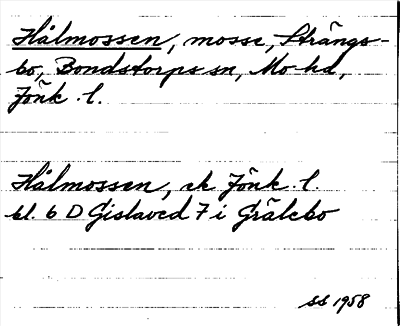 Hålmossen, mosse, Strängs-
bo, Bondstorps sn, Mo hd,
Jönk. l.
Hålmossen, ek Jönk. l.
bl. 6 D Gislaved 7 i Grälebo
SS 1958